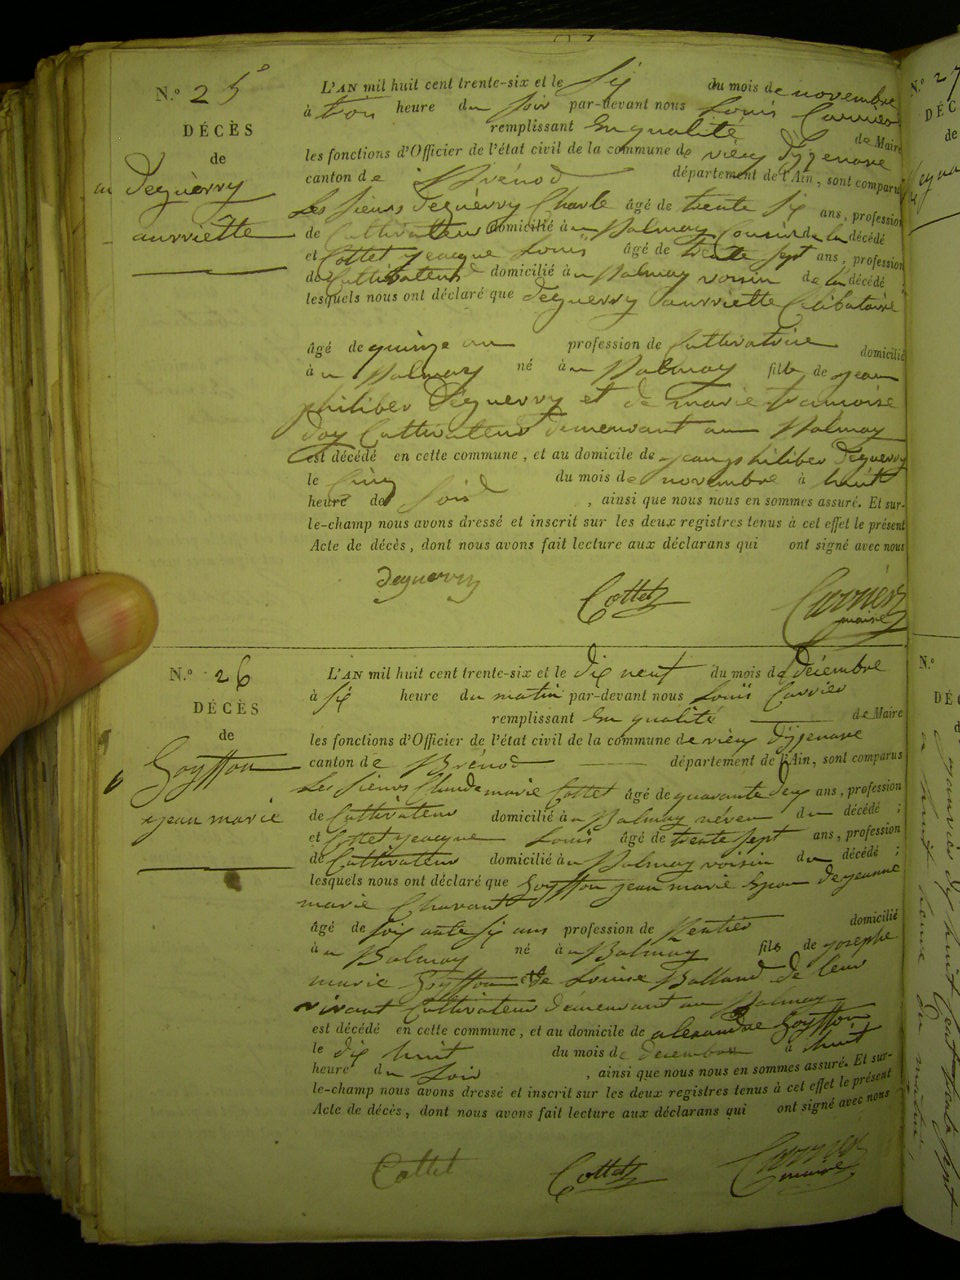 N.º 25
DÉCÈS
de
Deguerry
aurriette
L'AN mil huit cent trente-six et le Six du mois de novembre
à trois heure du soir par-devant nous Louis Carrier
remplissant En qualité de Maire
les fonctions d'Officier de l'état civil de la commune de vieux d'yzenave
canton de Brénod département de l'Ain, sont comparus
Les Sieurs Deguerry Charle âgé de trente Six ans, profession
de Cultivateur domicilié à Balmay Cousin de la décédé
et Cottet jeacque Louis âgé de trente sept ans, profession
de Cultivateur domicilié à Balmay voisin de la décédé ;
lesquels nous ont déclaré que Deguerry aurriette Célibataire
âgé de quinze an profession de Cultivatrice domicilié
à Balmay né à Balmay fille de jean
philiber Deguerry et de marie francoise
Cultivateur demeurant au Balmay
est décédé en cette commune, et au domicile de jean philiber Deguerry
le Cinq du mois de novembre à huit
heure de soir , ainsi que nous nous en sommes assuré. Et sur-
le-champ nous avons dressé et inscrit sur les deux registres tenus à cet effet le présent
Acte de décès, dont nous avons fait lecture aux déclarans qui ont signé avec nous
Cottet Carrier
maire
N.º 26
DÉCÈS
de
Goyffon
jean marie
L'AN mil huit cent trente-six et le dix neuf du mois de décembre
à six heure du matin par-devant nous Louis Carrier
remplissant En qualité de Maire
les fonctions d'Officier de l'état civil de la commune de vieux d'yzenave
canton de Brénod département de l'Ain, sont comparus
Les Sieurs Claude marie Cottet âgé de quarante deux ans, profession
de Cultivateur domicilié à Balmay néveu du décédé ;
et Cottet jeacque Louis âgé de trente sept ans, profession
de Cultivateur domicilié à Balmay voisin du décédé ;
lesquels nous ont déclaré que Goyffon jean marie Epoux de jeanne
marie Chavant
âgé de soixante six ans profession de Rentier domicilié
à Balmay né à Balmay fils de josephe
marie Goyffon et de Louise Balland de leur
vivant Cultivateur demeurant au Balmay
est décédé en cette commune, et au domicile de alexandre Goyffon
le dix huit du mois de decembre à huit
heure du soir , ainsi que nous nous en sommes assuré. Et sur-
le-champ nous avons dressé et inscrit sur les deux registres tenus à cet effet le présent
Acte de décès, dont nous avons fait lecture aux déclarans qui ont signé avec nous
Cottet Cottet Carrier
maire
N.º 27